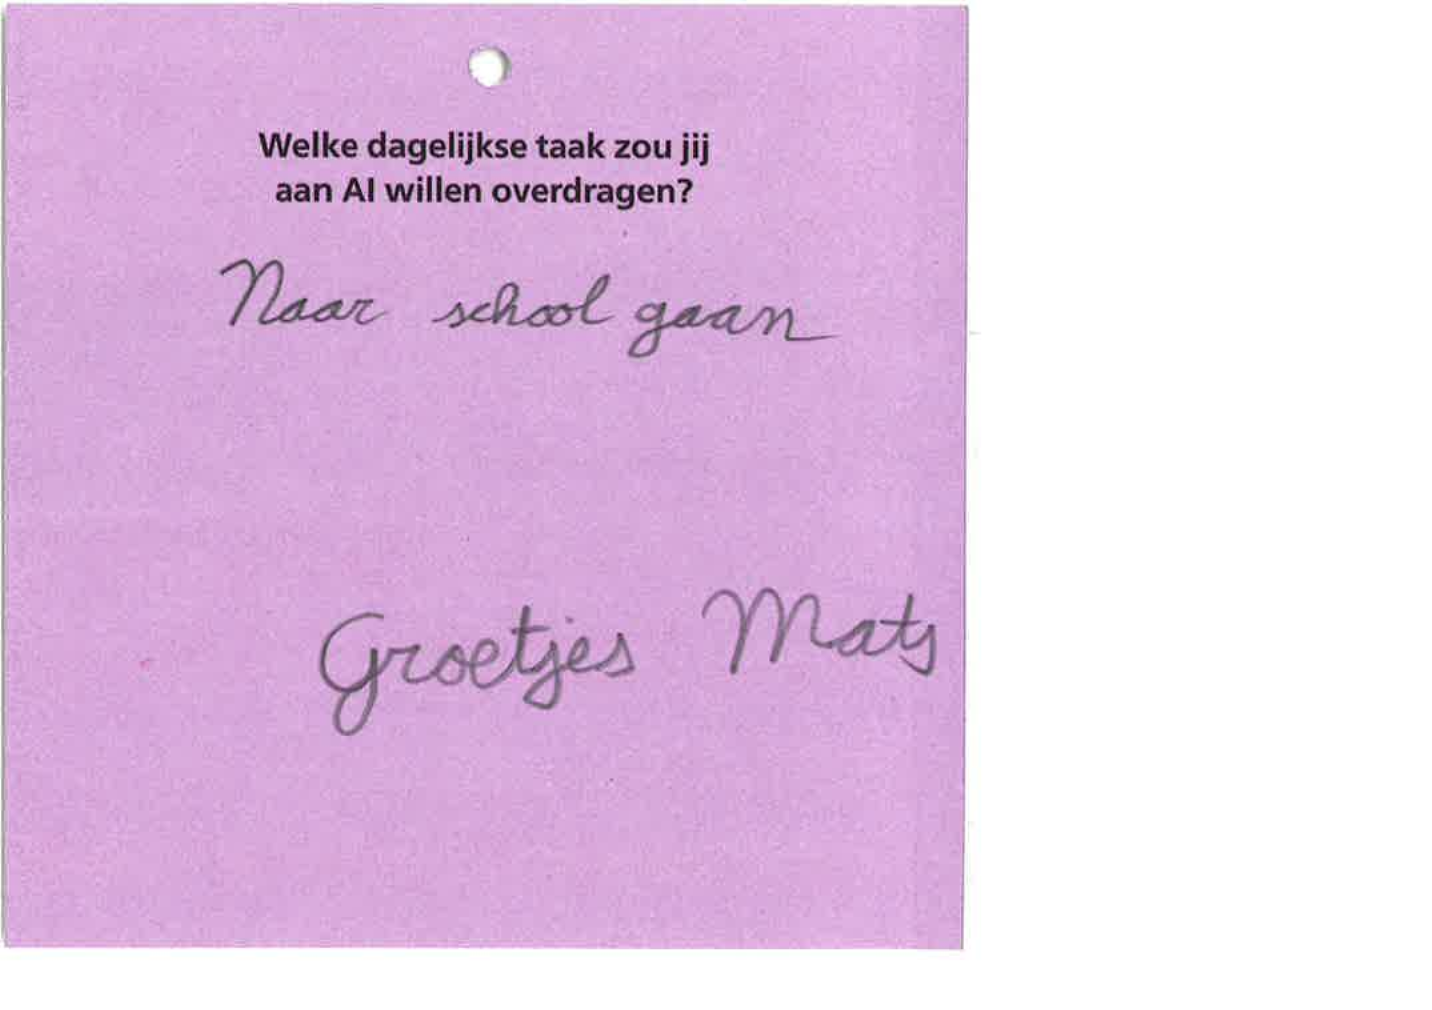 Welke dagelijkse taak zou jij
aan AI willen overdragen?
Naar school gaan
Groetjes Mats